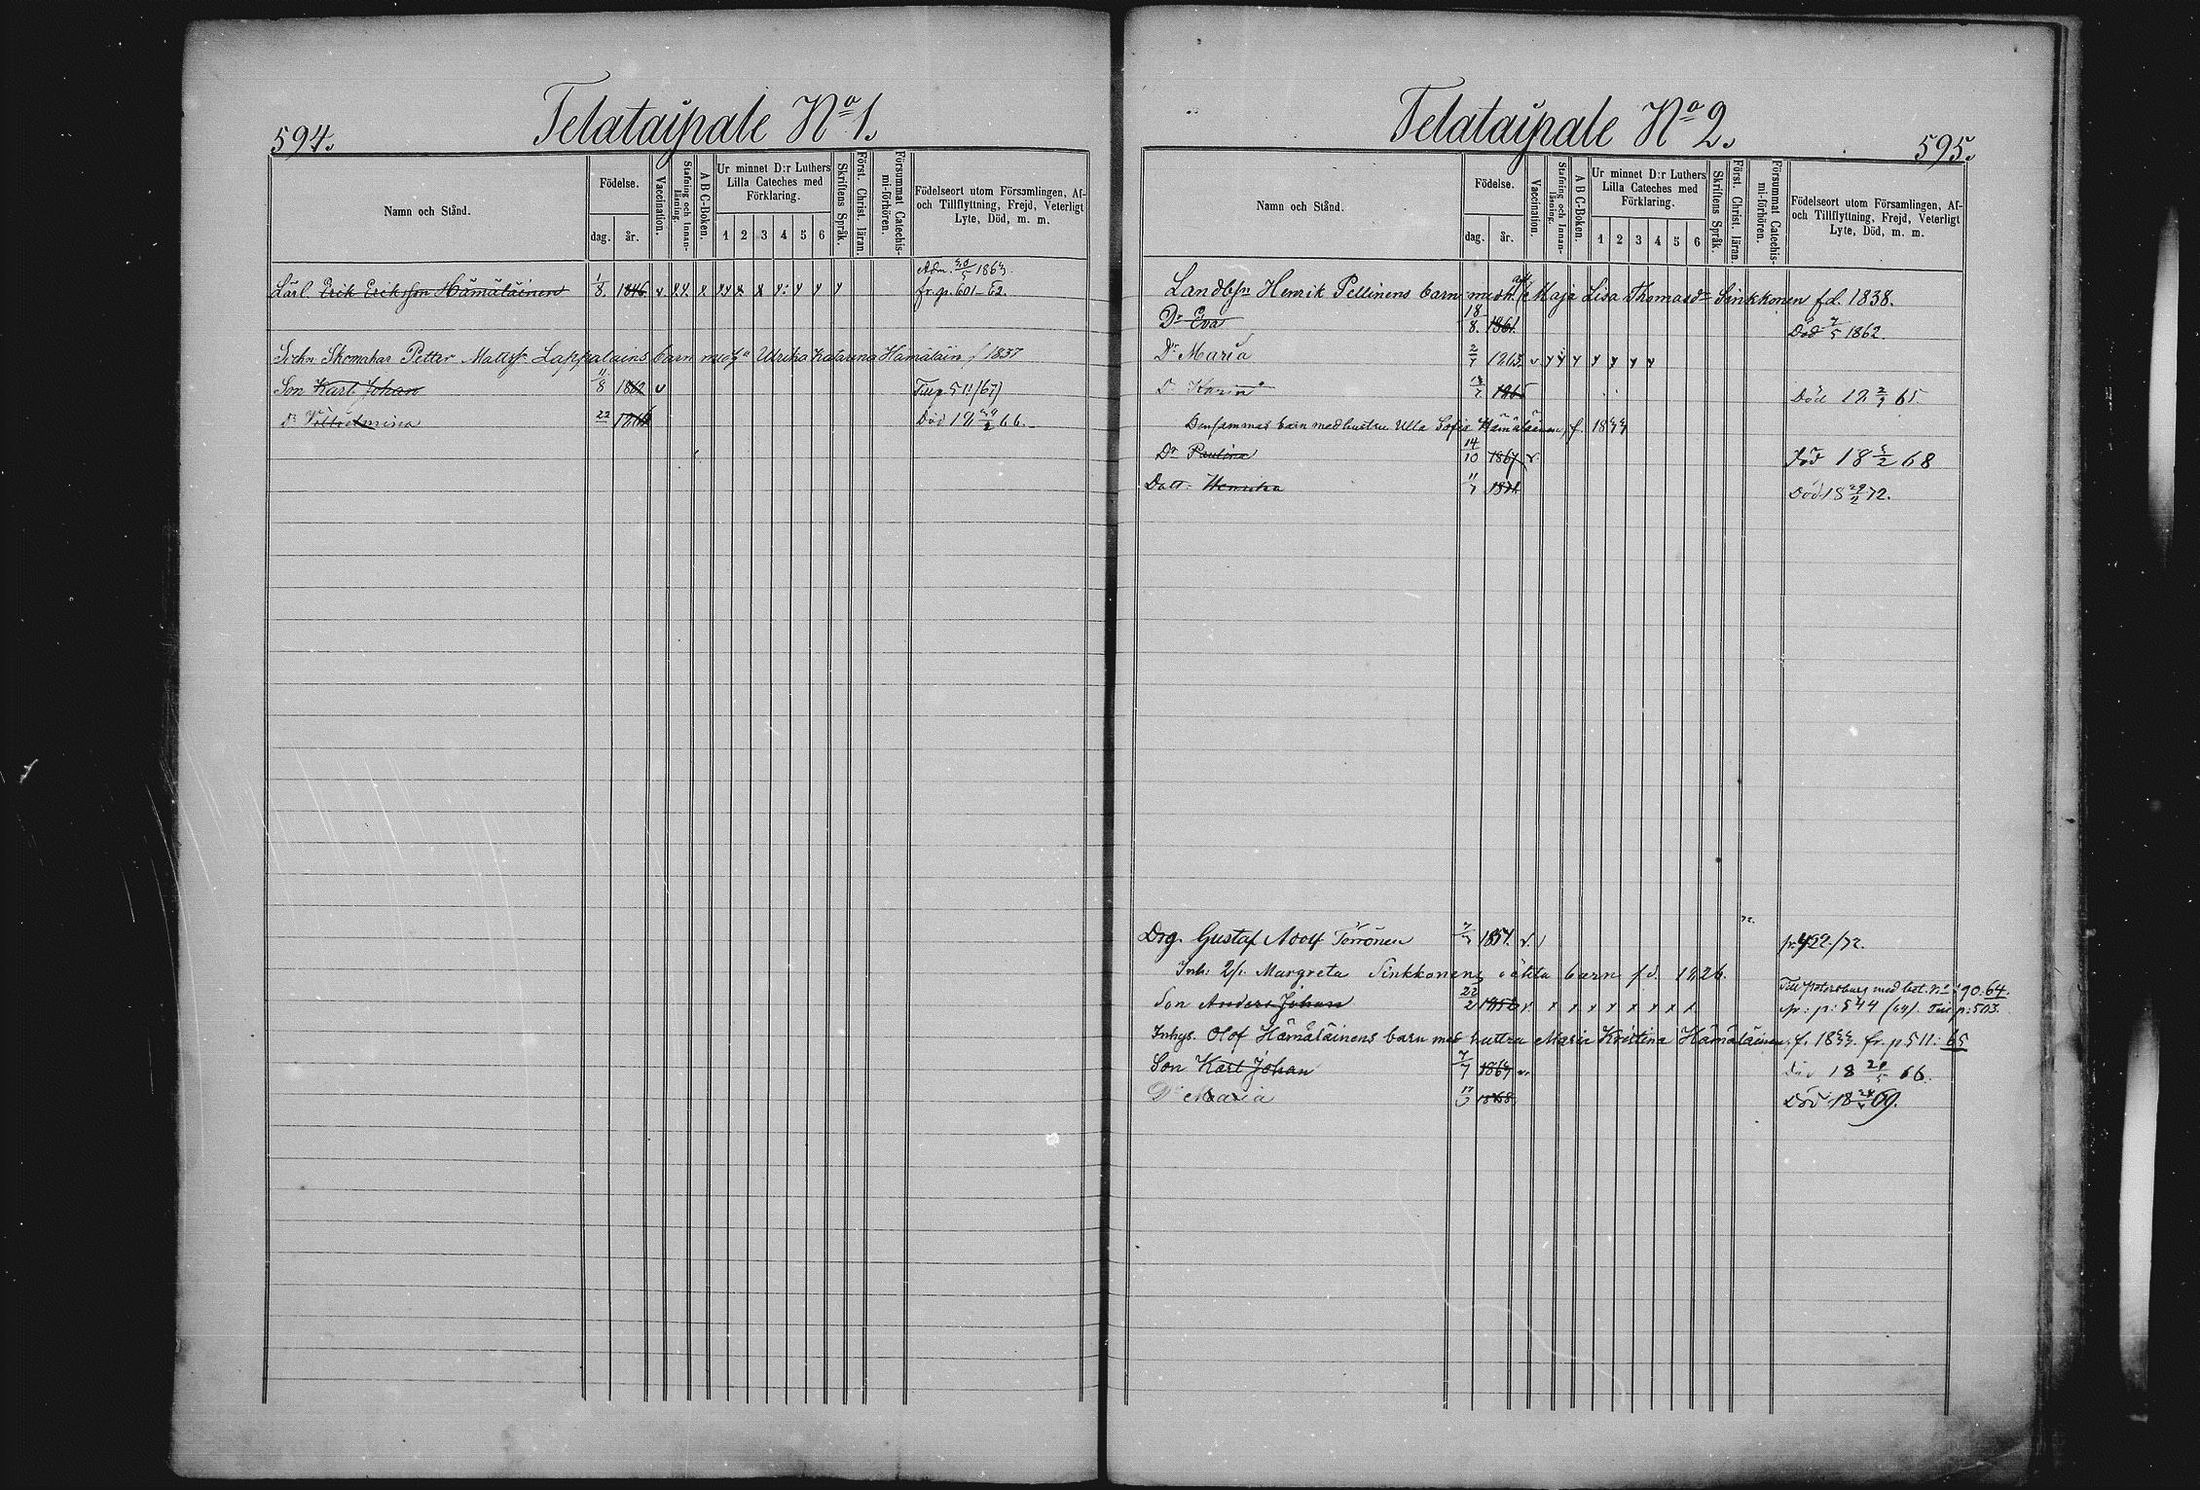 594.
Telataipale No 1.
Namn och Stånd.
Födelse.
dag.
år.
Vaccination.
Stafning och Innan-läsning.
A B C-Boken.
Ur minnet D:r Luthers Lilla Cateches med Förklaring.
1 2 3 4 5 6
Skriftens Språk.
Först. Christ. läran.
Försummat Catechis-mi-förhören.
Födelseort utom Församlingen, Af- och Tillflyttning, Frejd, Veterligt Lyte, Död, m. m.
Adm. 30/5 1863.
Lärl. Erik Eriksson Hämäläinen 1/8. 1846 v x x x x x x x x x x x fr. p. 601-62.
Sockn Skomakar Petter Matts: Lappalains barn Ulrika Katarina Hämäläin f 1837
Son Karl Johan 11/8 1862 v Till p 511/67)
Dr Vilhelmina 22 Död 18 66.
Telataipale No 2.
595.
Namn och Stånd.
Födelse.
dag.
år.
Vaccination.
Stafning och Innan-läsning.
A B C-Boken.
Ur minnet D:r Luthers Lilla Cateches med Förklaring.
1 2 3 4 5 6
Skriftens Språk.
Först. Christ. läran.
Försummat Catechis-mi-förhören.
Födelseort utom Församlingen, Af- och Tillflyttning, Frejd, Veterligt Lyte, Död, m. m.
Landb:n Henrik Pellinens barn med h. Maja Lisa Thomasdr Sinkkonen fd. 1838.
Dr Eva 18/8. 1861. Död 7/5 1862.
Dr Maria 2/7 1863 v x x x x x x x
D. Karin 1865 Död 18 65.
Densammas barn med hustru Ulla Sofia Hämäläinen, f. 1844
Dr Paulina 14/10 1867 v. död 18 5/2 68
Dott. Henrika 11/7 1871 Död 18 29/2 72.
Drg. Gustaf Adolf Törrönen 1854. v. fr. 422/72.
Inh: Margreta Sinkkonens oäkta barn fd. 1826.
Till Petersburg med bet. No 90.64.
Son Anders Johan 22/2 1852 v. x x x x x x x x p: 544 (64). Till p: 503.
Inhys. Olof Hämäläinens barn med hustru Maria Kristina Hämäläinen f. 1833. fr. p 511: 65
Son Karl Johan 7/7 1864 v. Död 18 29/5 66.
Dr Maria 1868 Död 18 69.